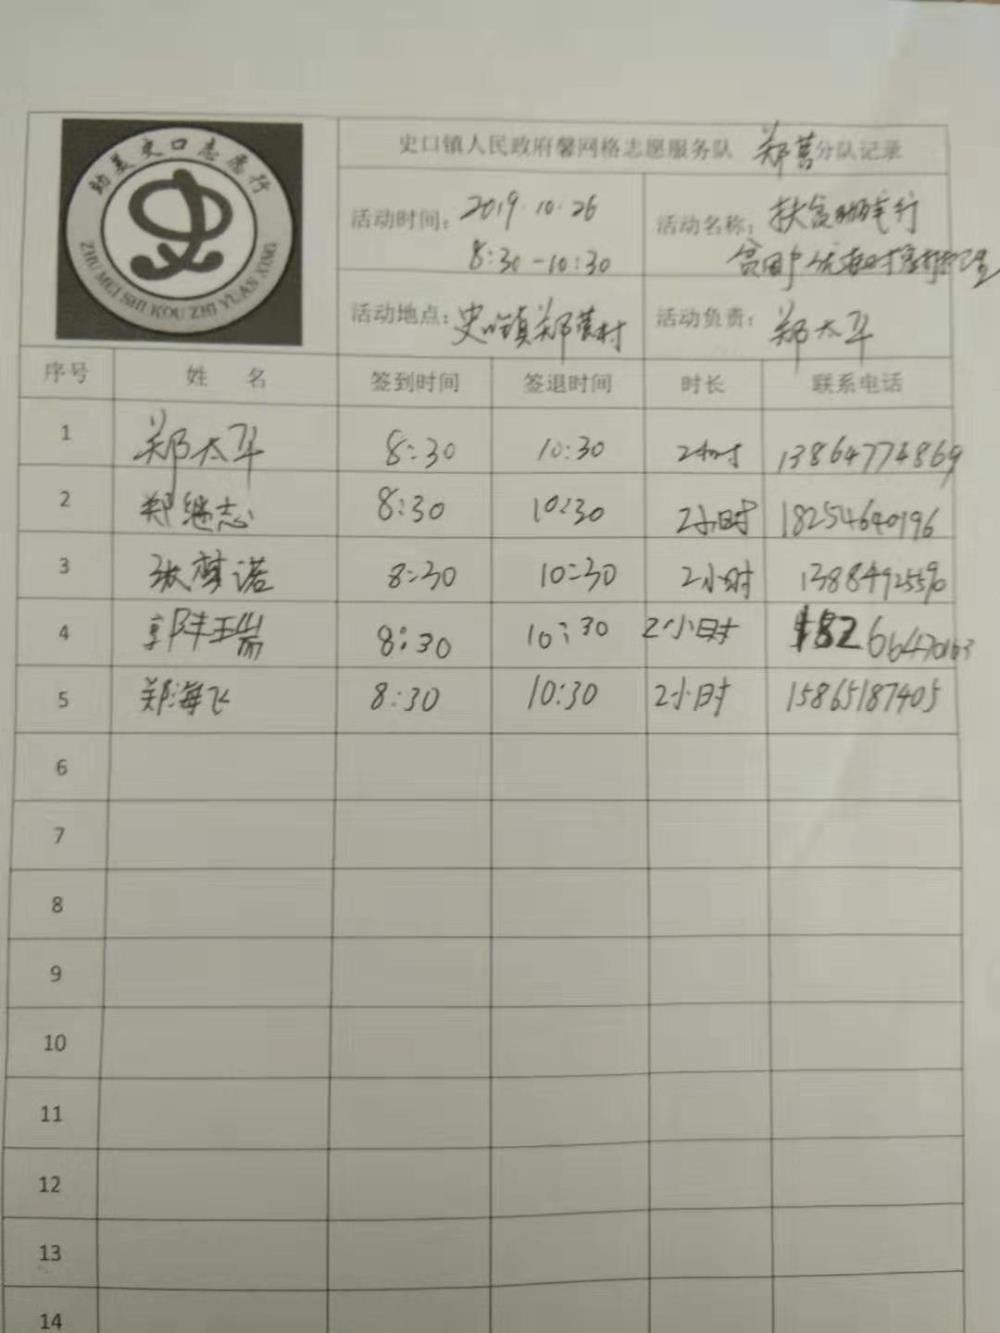 助美史口志愿行
ZHU MEI SHI KOU ZHI YUAN XING
史口镇人民政府馨网格志愿服务队 郑营分队记录
活动时间: 2019.10.26
8:30-10:30
活动名称: 扶贫
贫困户
活动地点: 史口镇郑营村
活动负责: 郑太平
序号 姓 名 签到时间 签退时间 时长 联系电话
1 郑太平 8:30 10:30 2小时 13864774869
2 郑继志 8:30 10:30 2小时 18254640196
3 张梦诺 8:30 10:30 2小时 13884925590
4 郭玉瑞 8:30 10:30 2小时 18266470163
5 郑海飞 8:30 10:30 2小时 15865187405
6
7
8
9
10
11
12
13
14